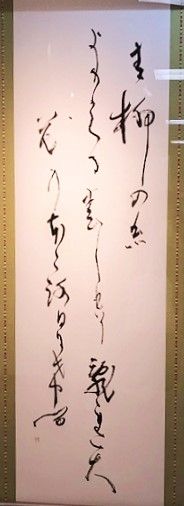 青柳の糸
よりかくる春しもぞ亂れて
花のほころびにける